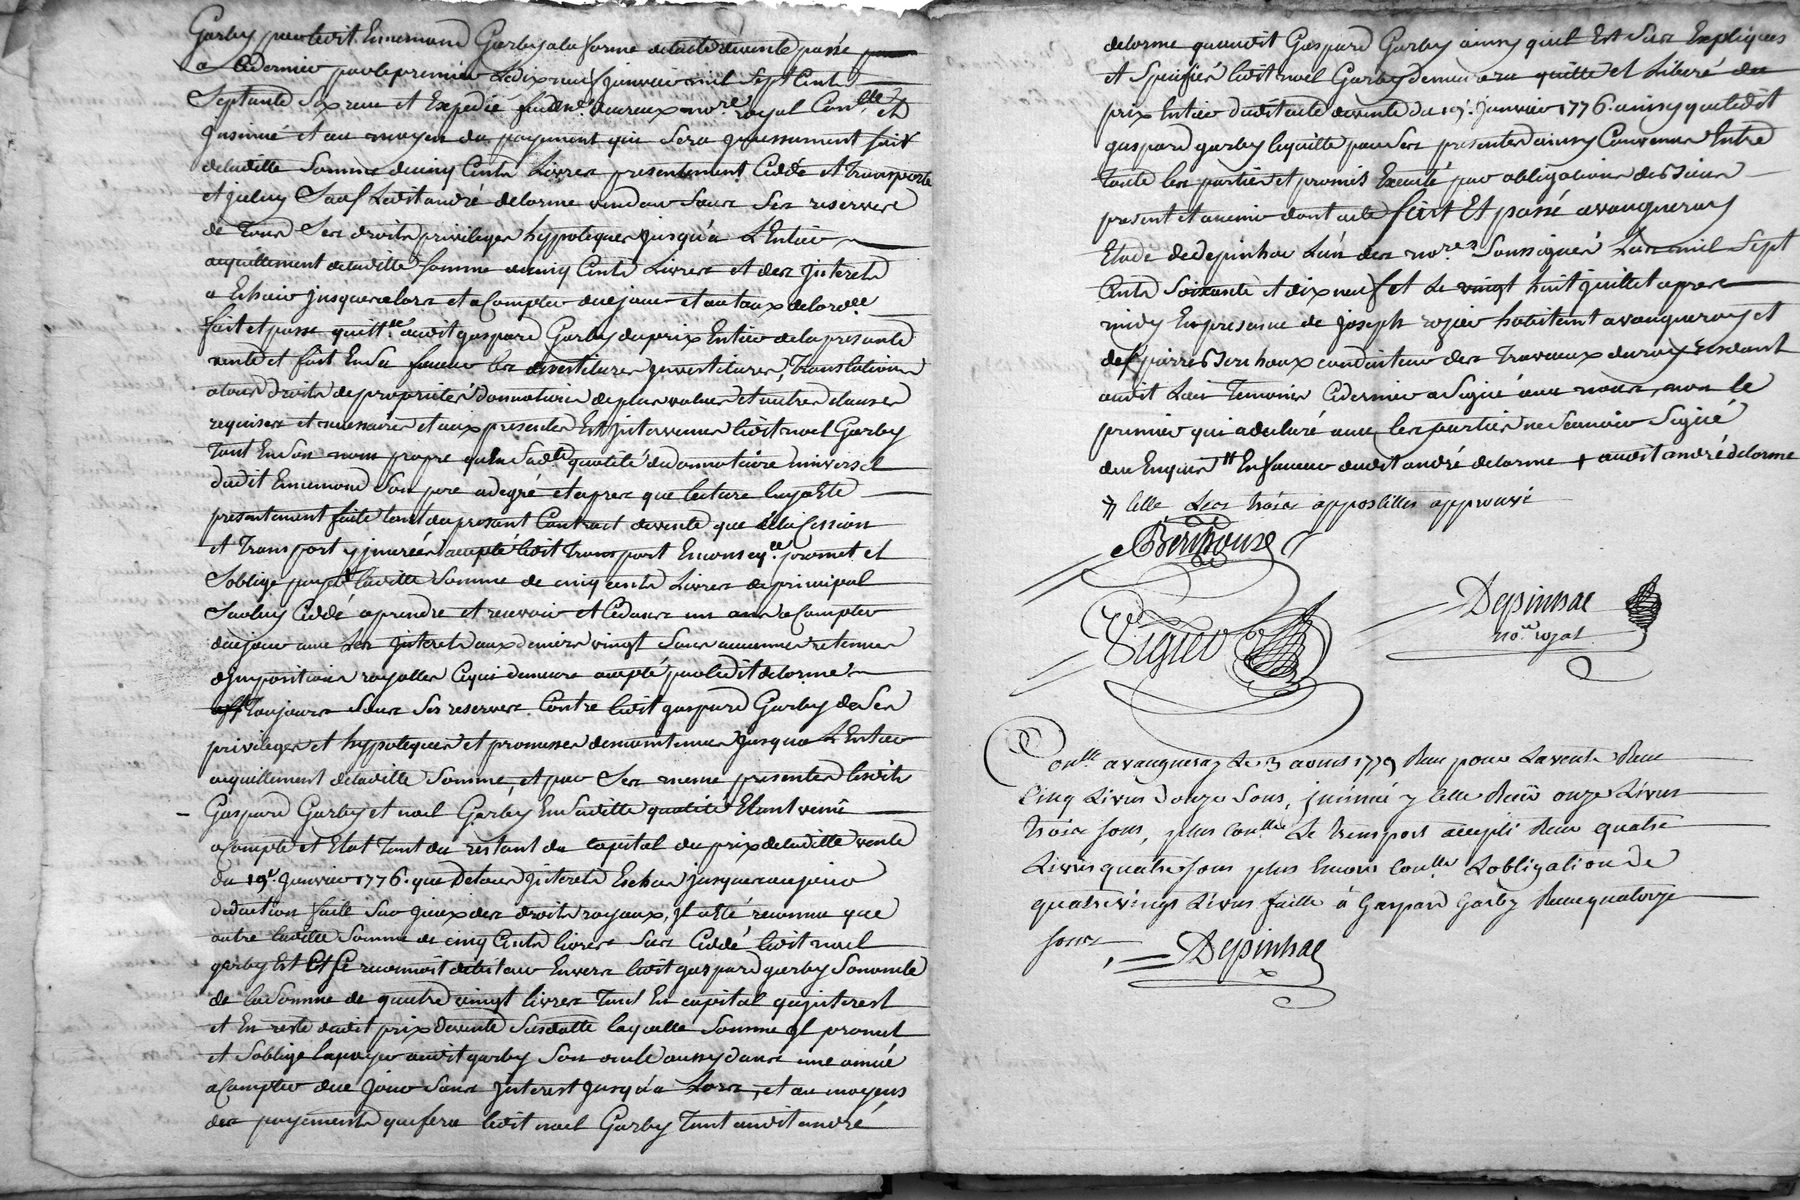 Garby par ledit Ennemond Garby a la forme de lacte de vente passé
a ce dernier par le premier le dix neuf janvier mil sept cents
septante six reçu et expedié nore royal Conllé et
Insinué et au moyen du payement qui sera presentement fait
de ladite somme de cinq cents livres presentement cédée et transporté
et jceluy sauf ledit andré delorme vendeur sous ses reserves
de tous ses droits privileges hypoteques jusqu'a l'Entier
acquittement de ladite somme de cinq cents livres et des jnterets
a Echoir jusques alors et a compter de ce jour et au taux de lordce
fait et passe quittce audit gaspard Garby du prix Entier de la presente
vente et fait En sa faveur les devestitures jnvestitures, translations
a tous droits de proprietés donnations de plus values et autres clauses
requises et necessaires et aux presentes Est jntervenu ledit noel Garby
tant En son nom propre qu'En sadte qualité de donnataire universel
dudit Ennemond son pere a degré et apres que lecture luy a Eté
presentement faite tant du present Contract de vente que de la Cession
et transport y jnserés accepté ledit transport En conseqce promet et
soblige payer ladite somme de cinq cents livres de principal
sauluy cédé a prendre et recevoir et ce dans un an a compter
de ce jour avec les jnterets aux deniers vingt sans aucunne retenue
d'jmpositions royalles ce qui demeure accepté par ledit delorme
toujours sous ses reserves Contre ledit gaspard Garby de ses
privileges et hypoteques et promesses de maintenue jusqu'a l'Entier
acquittement de ladite somme, et par ses meme presentes lesdits
Gaspard Garby et noel Garby En sadite qualité Etant venu
a compte et Etat tant du restant du capital du prix de ladite vente
du 19e. janvier 1776. que de tous jnterets Echus jusques a ce jour
deduction faite sur jceux des droits royaux, jl a été reconnu que
outre ladite somme de cinq cents livres sus cédé ledit noel
garby Est et se reconnoit débiteur Envers ledit gaspard garby son oncle
de la somme de quatre vingt livres tant En capital qu'jnterest
et En reste dudit prix de vente susdatté laquelle somme jl promet
et soblige la payer audit garby son oncle aussy dans une année
a compter de ce jour sans jnterest jusqu'a lors, et au moyens
des payements que fera ledit noel Garby tant audit andré
delorme qu'audit Gaspard Garby ainsy quil Est sus Expliqués
et speciffiés ledit noel Garby demeurera quitte et liberé du
prix Entier dudit acte de vente du 19e. janvier 1776. ainsy que ledit
gaspard garby lequitte par ses presentes ainsy Convenu Entre
toute les parties et promis Executé par obligations de biens
present et avenir dont acte fait Et passé a vaugneray
Etude de depinhac l'un des nores soussignés l'an mil sept
cents soixante et dix neuf et le vingt huit juillet apres
midy En presence de joseph rozier habitant a vaugneray et
de s. pierre Berthoux conducteur des travaux du roy residant
audit lieu temoins ce dernier a signé avec nous, non le
premier qui a declaré avec les parties ne scavoir signé
de ce Enquis # En faveur dudit andré delorme + audit andré delorme
⁊ celle les trois appostilles approuvé
Berthoux
Vigier
Depinhac
no.re royal
Conllé a vaugneray le 3 aoust 1779 Reçu pour la vente Reçu
Cinq Livres douze sous, jnsinué y celle Reçu onze Livres
trois sous, plus Conllé le transport accepté Reçu quatre
Livres quatre sous plus Encore Conllé L'obligation de
quatrevingt Livres faitte à Gaspard Garby Reçu quatorze
sous
Depinhac